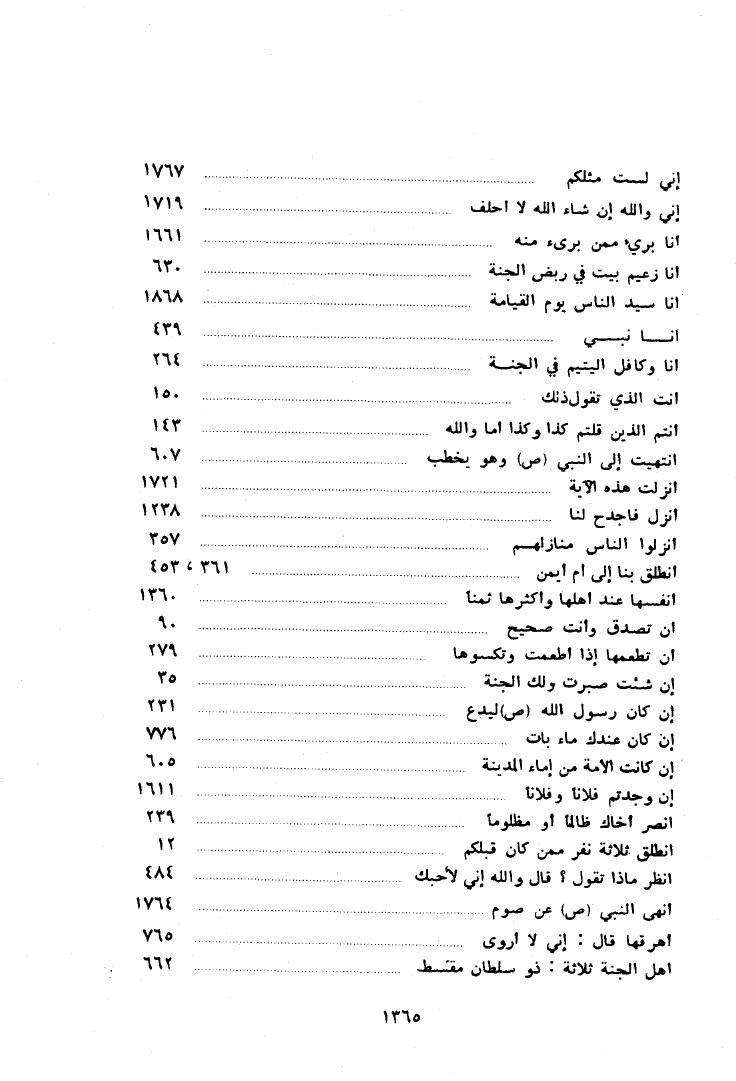 إني لست مثلكم ١٧٦٧
إني والله إن شاء الله لا أحلف ١٧١٩
أنا بريء ممن برىء منه ١٦٦١
أنا زعيم بيت في ربض الجنة ٦٣٠
أنا سيد الناس يوم القيامة ١٨٦٨
أنــا نبــي ٤٣٩
أنا وكافل اليتيم في الجنــة ٢٦٤
أنت الذي تقول ذلك ١٥٠
أنتم الذين قلتم كذا وكذا أما والله ١٤٣
انتهيت إلى النبي (ص) وهو يخطب ٦٠٧
أنزلت هذه الآية ١٧٢١
أنزل فاجدح لنا ١٢٣٨
أنزلوا الناس منازلهــم ٣٥٧
انطلق بنا إلى أم أيمن ٣٦١ ، ٤٥٣
أنفسها عند أهلها وأكثرها ثمناً ١٣٦٠
أن تصدق وأنت صحيح ٩٠
أن تطعمها إذا أطعمت وتكسوها ٢٧٩
إن شئت صبرت ولك الجنة ٣٥
إن كان رسول الله (ص) ليدع ٢٣١
إن كان عندك ماء بات ٧٧٦
إن كانت الأمة من إماء المدينة ٦٠٥
إن وجدتم فلاناً وفلاناً ١٦١١
انصر أخاك ظالماً أو مظلوماً ٢٣٩
انطلق ثلاثة نفر ممن كان قبلكم ١٢
انظر ماذا تقول ؟ قال والله إني لأحبك ٤٨٤
أنهى النبي (ص) عن صوم ١٧٦٤
أهرقها قال : إني لا أروى ٧٦٥
أهل الجنة ثلاثة : ذو سلطان مقسط ٦٦٢
١٣٦٥